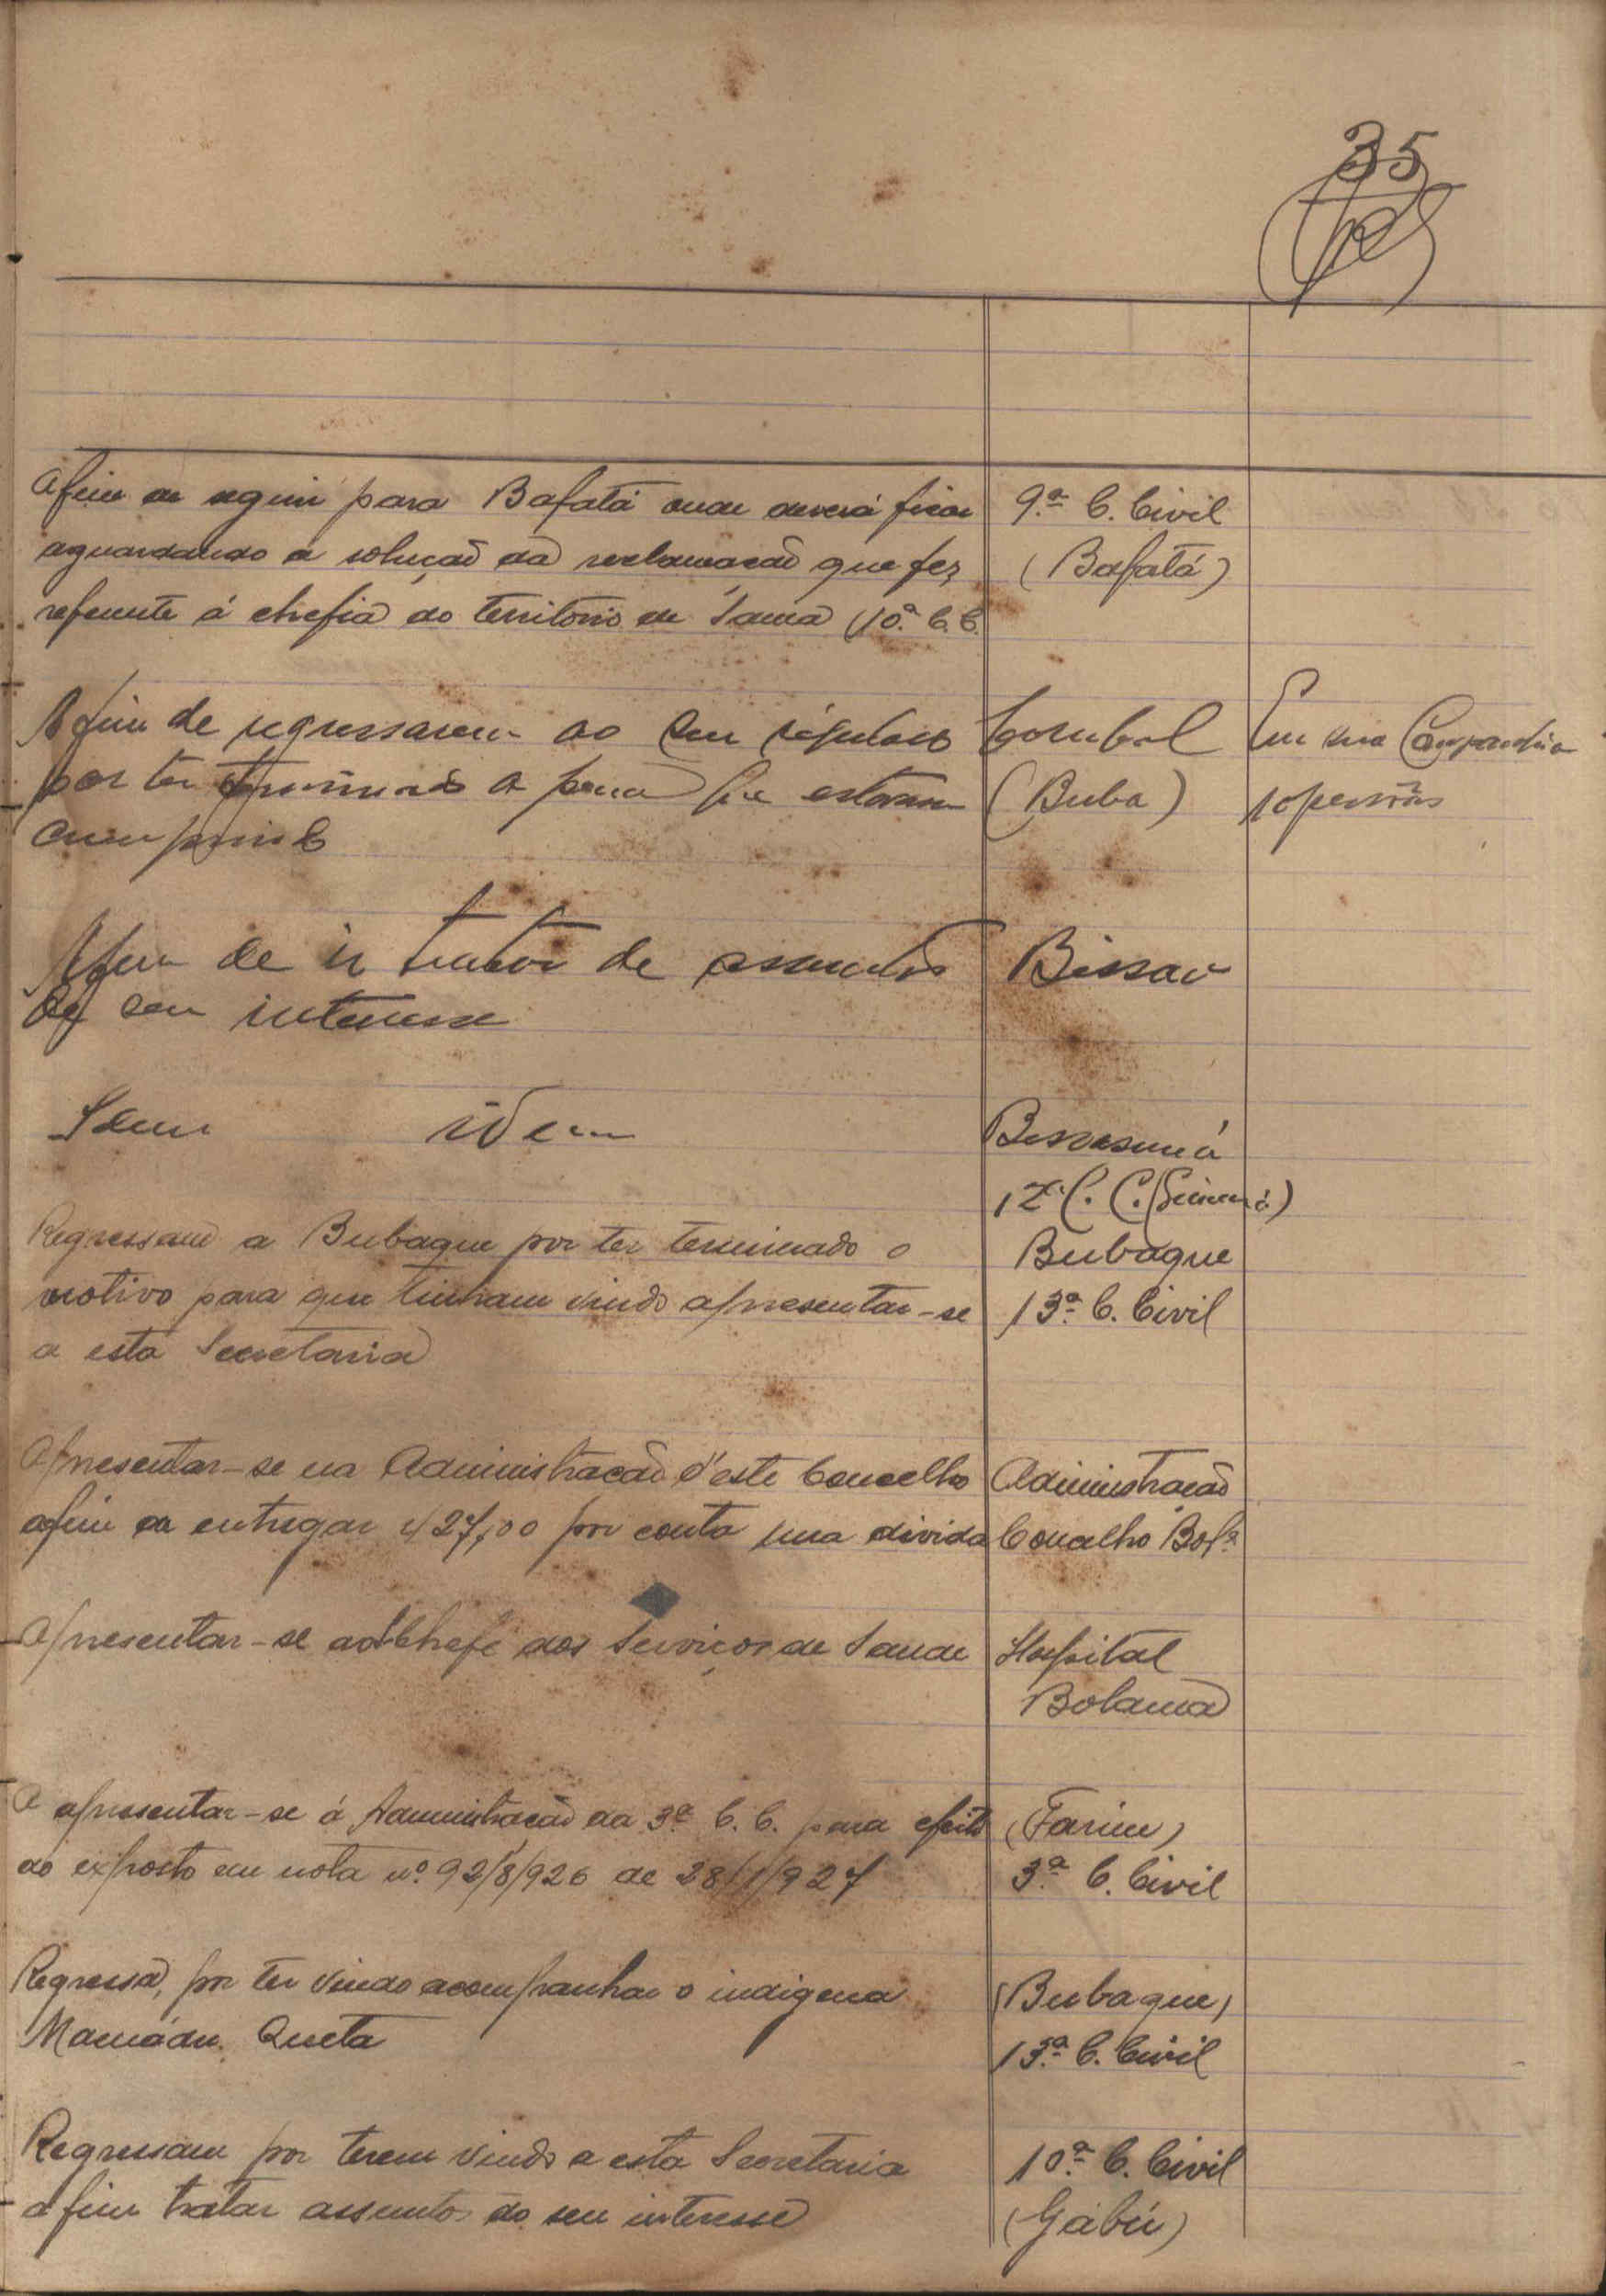 35
Afim de seguir para Bafatá onde deverá ficar
aguardando a solução da reclamação que fez
referente á chefia do territorio de Sama (10.ª C. C.
9.ª C. Civil
(Bafatá)
Afim de regressarem ao seu regulado
por ter terminado a pena que estavam
cumprindo
Corubal
(Buba)
Em sua Companhia
10 pessoas
Afim de ir tratar de assuntos
de seu interesse
Bissau
Idem idem
Bissassemá
12ª C. C.
Regressam a Bubaque por ter terminado o
motivo para que tinham vindo apresentar-se
a esta Secretaria
Bubaque
13ª C. Civil
Apresentar-se na Administração d'este Concelho
afim de entregar 427,00 por conta sua divida
Administração
Concelho Bol.ª
Apresentar-se ao Chefe dos Serviços de Saude
Hospital
Bolama
A apresentar-se á Administração da 3ª C. C. para efeito
do exposto em nota nº 92/8/926 de 28/1/927
(Farim)
3.ª C. Civil
Regressa, por ter vindo acompanhar o indigena
Mamadu Queta
(Bubaque)
13.ª C. Civil
Regressam por terem vindo a esta Secretaria
afim tratar assuntos do seu interesse
10.ª C. Civil
(Gabú)